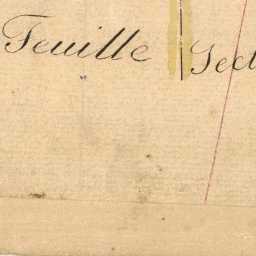 Feuille Sect